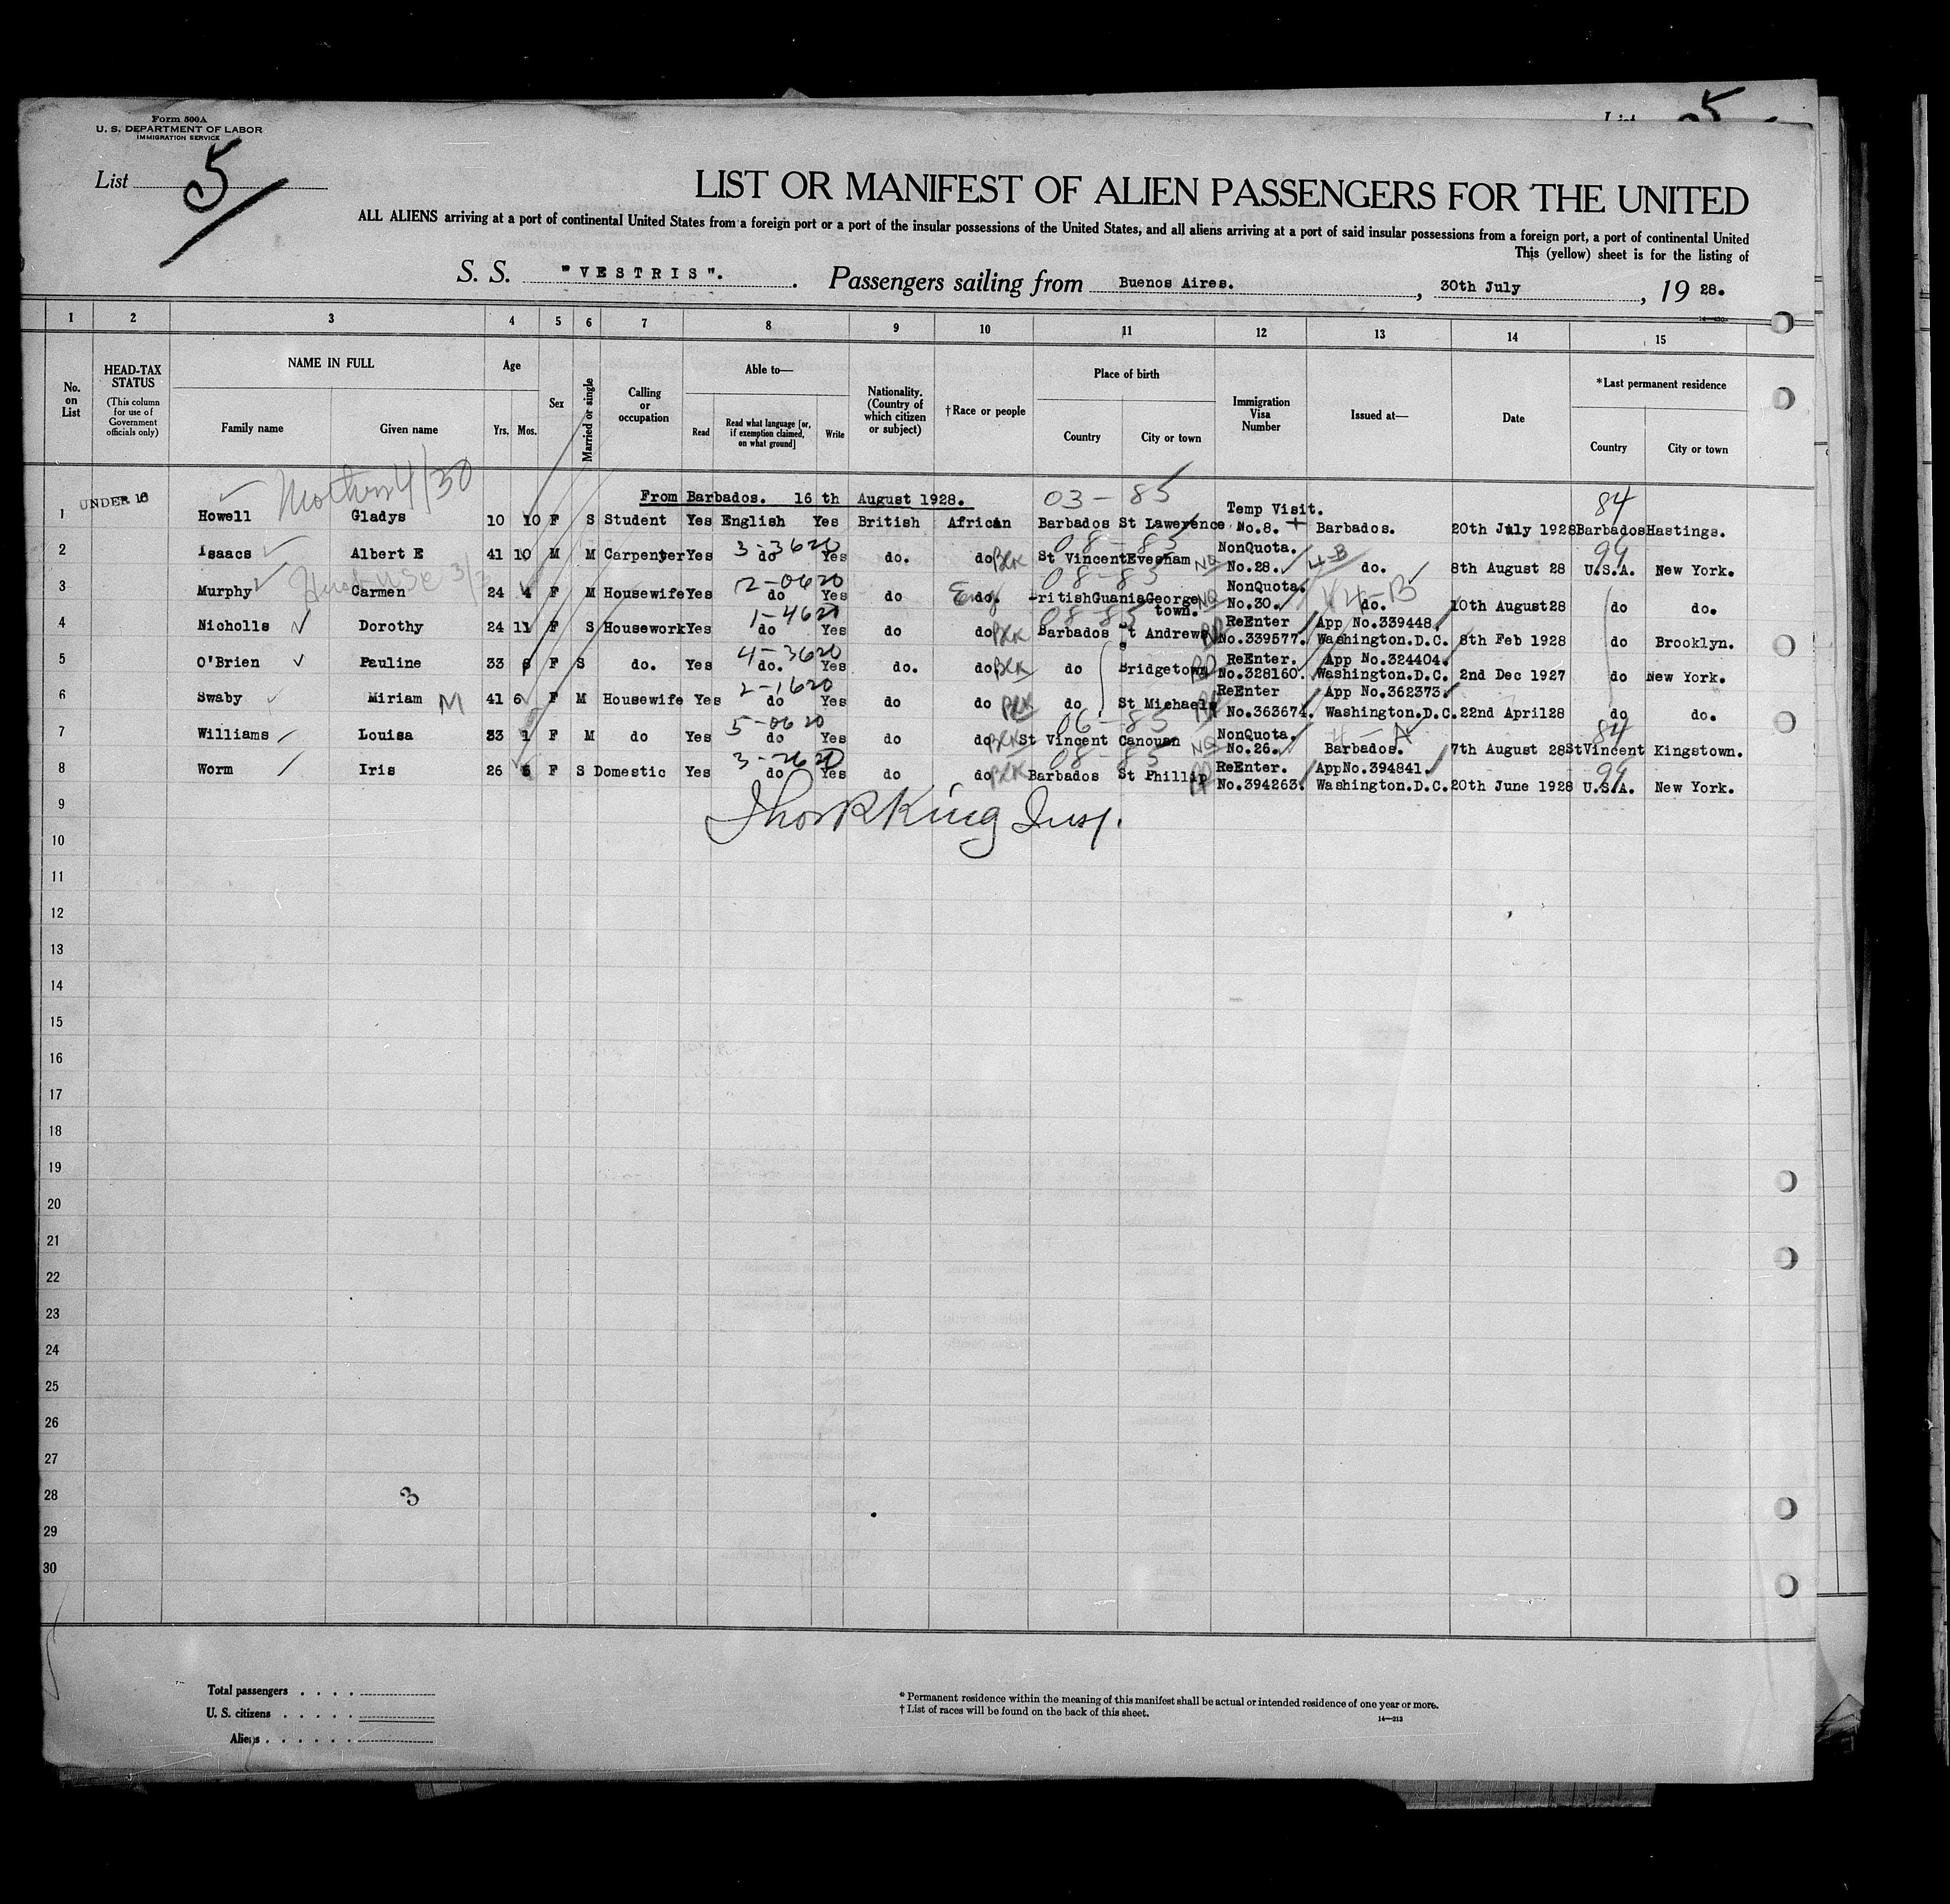 List 5
Form 500A
U. S. DEPARTMENT OF LABOR
IMMIGRATION SERVICE
List 5
LIST OR MANIFEST OF ALIEN PASSENGERS FOR THE UNITED
ALL ALIENS arriving at a port of continental United States from a foreign port or a port of the insular possessions of the United States, and all aliens arriving at a port of said insular possessions from a foreign port, a port of continental United
This (yellow) sheet is for the listing of
S. S. "VESTRIS". Passengers sailing from Buenos Aires. , 30th July , 19 28.
1 2 3 4 5 6 7 8 9 10 11 12 13 14 15
No. on List
HEAD-TAX STATUS
(This column for use of Government officials only)
NAME IN FULL
Family name Given name
Age
Yrs. Mos.
Sex
Married or single
Calling or occupation
Able to—
Read Read what language [or, if exemption claimed, on what ground] Write
Nationality. (Country of which citizen or subject)
†Race or people
Place of birth
Country City or town
Immigration Visa Number
Issued at—
Date
*Last permanent residence
Country City or town
Mother 4/30
UNDER 16
From Barbados. 16 th August 1928. 03-85 Temp Visit. 84
1 Howell Gladys 10 10 F S Student Yes English Yes British African Barbados St Lawerence No.8. Barbados. 20th July 1928 Barbados Hastings.
3-3620 08-85 NonQuota. 4-B 99
2 Isaacs Albert E 41 10 M M Carpenter Yes do Yes do. do Blk St Vincent Evesham NQ No.28. do. 8th August 28 U.S.A. New York.
2-0620 08-85 NonQuota. V4-B
3 Murphy Carmen 24 4 F M Housewife Yes do Yes do Eng do. ritishGuania George town. NQ No.30. do. 10th August28 do do.
1-4620 08-85 ReEnter App No.339448.
4 Nicholls Dorothy 24 11 F S Housework Yes do Yes do do Blk Barbados t Andrews No.339577. Washington.D.C. 8th Feb 1928 do Brooklyn.
4-3620 ReEnter. App No.324404.
5 O'Brien Pauline 33 F S do. Yes do. Yes do. do Blk do Bridgetown No.328160. Washington.D.C. 2nd Dec 1927 do New York.
2-1620 ReEnter App No.362373.
6 Swaby Miriam M 41 6 F M Housewife Yes do Yes do do Blk do St Michaels No.363674. Washington.D.C. 22nd April28 do do.
5-0620 06-85 NonQuota. A 84
7 Williams Louisa 33 1 F M do Yes do Yes do do Blk St Vincent Canouan NQ No.26. Barbados. 7th August 28 StVincent Kingstown.
3-2620 08-85 ReEnter. AppNo.394841. 99
8 Worm Iris 26 F S Domestic Yes do Yes do do Blk Barbados St Phillip No.394263. Washington.D.C. 20th June 1928 U.S.A. New York.
9
King Insp.
10
11
12
13
14
15
16
17
18
19
20
21
22
23
24
25
26
27
28
3
29
30
Total passengers . . . .
U. S. citizens . . . . .
Aliens . . . . . .
* Permanent residence within the meaning of this manifest shall be actual or intended residence of one year or more.
† List of races will be found on the back of this sheet.
14—213